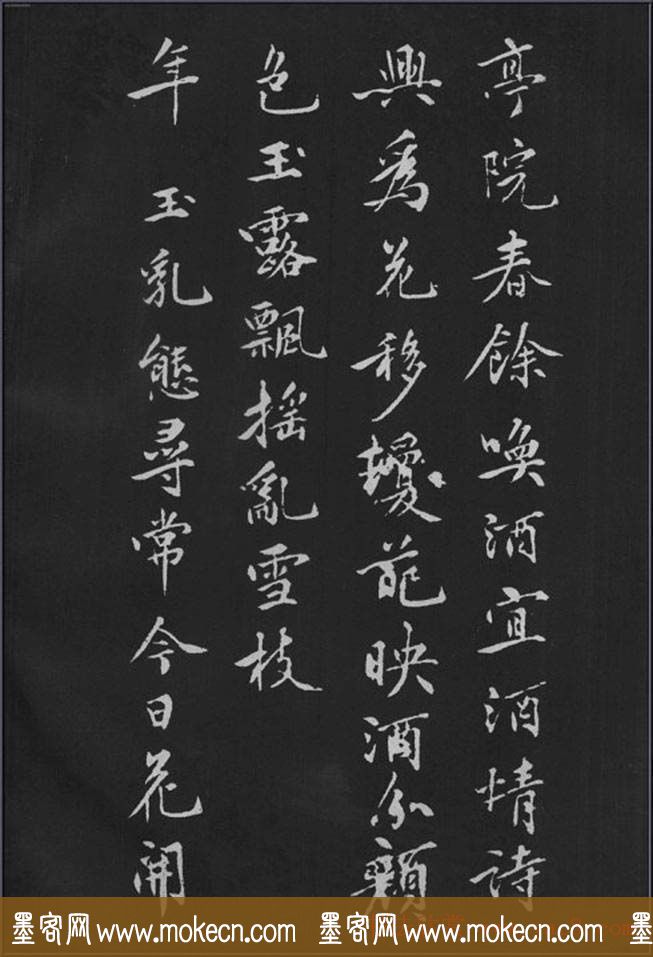 亭院春餘喚酒宜酒情詩
興為花移瓊葩映酒分顏
色玉露飄摇亂雪枝
年 玉乳態尋常今日花開
墨客网 www.mokecn.com 墨客网 www.mokecn.com